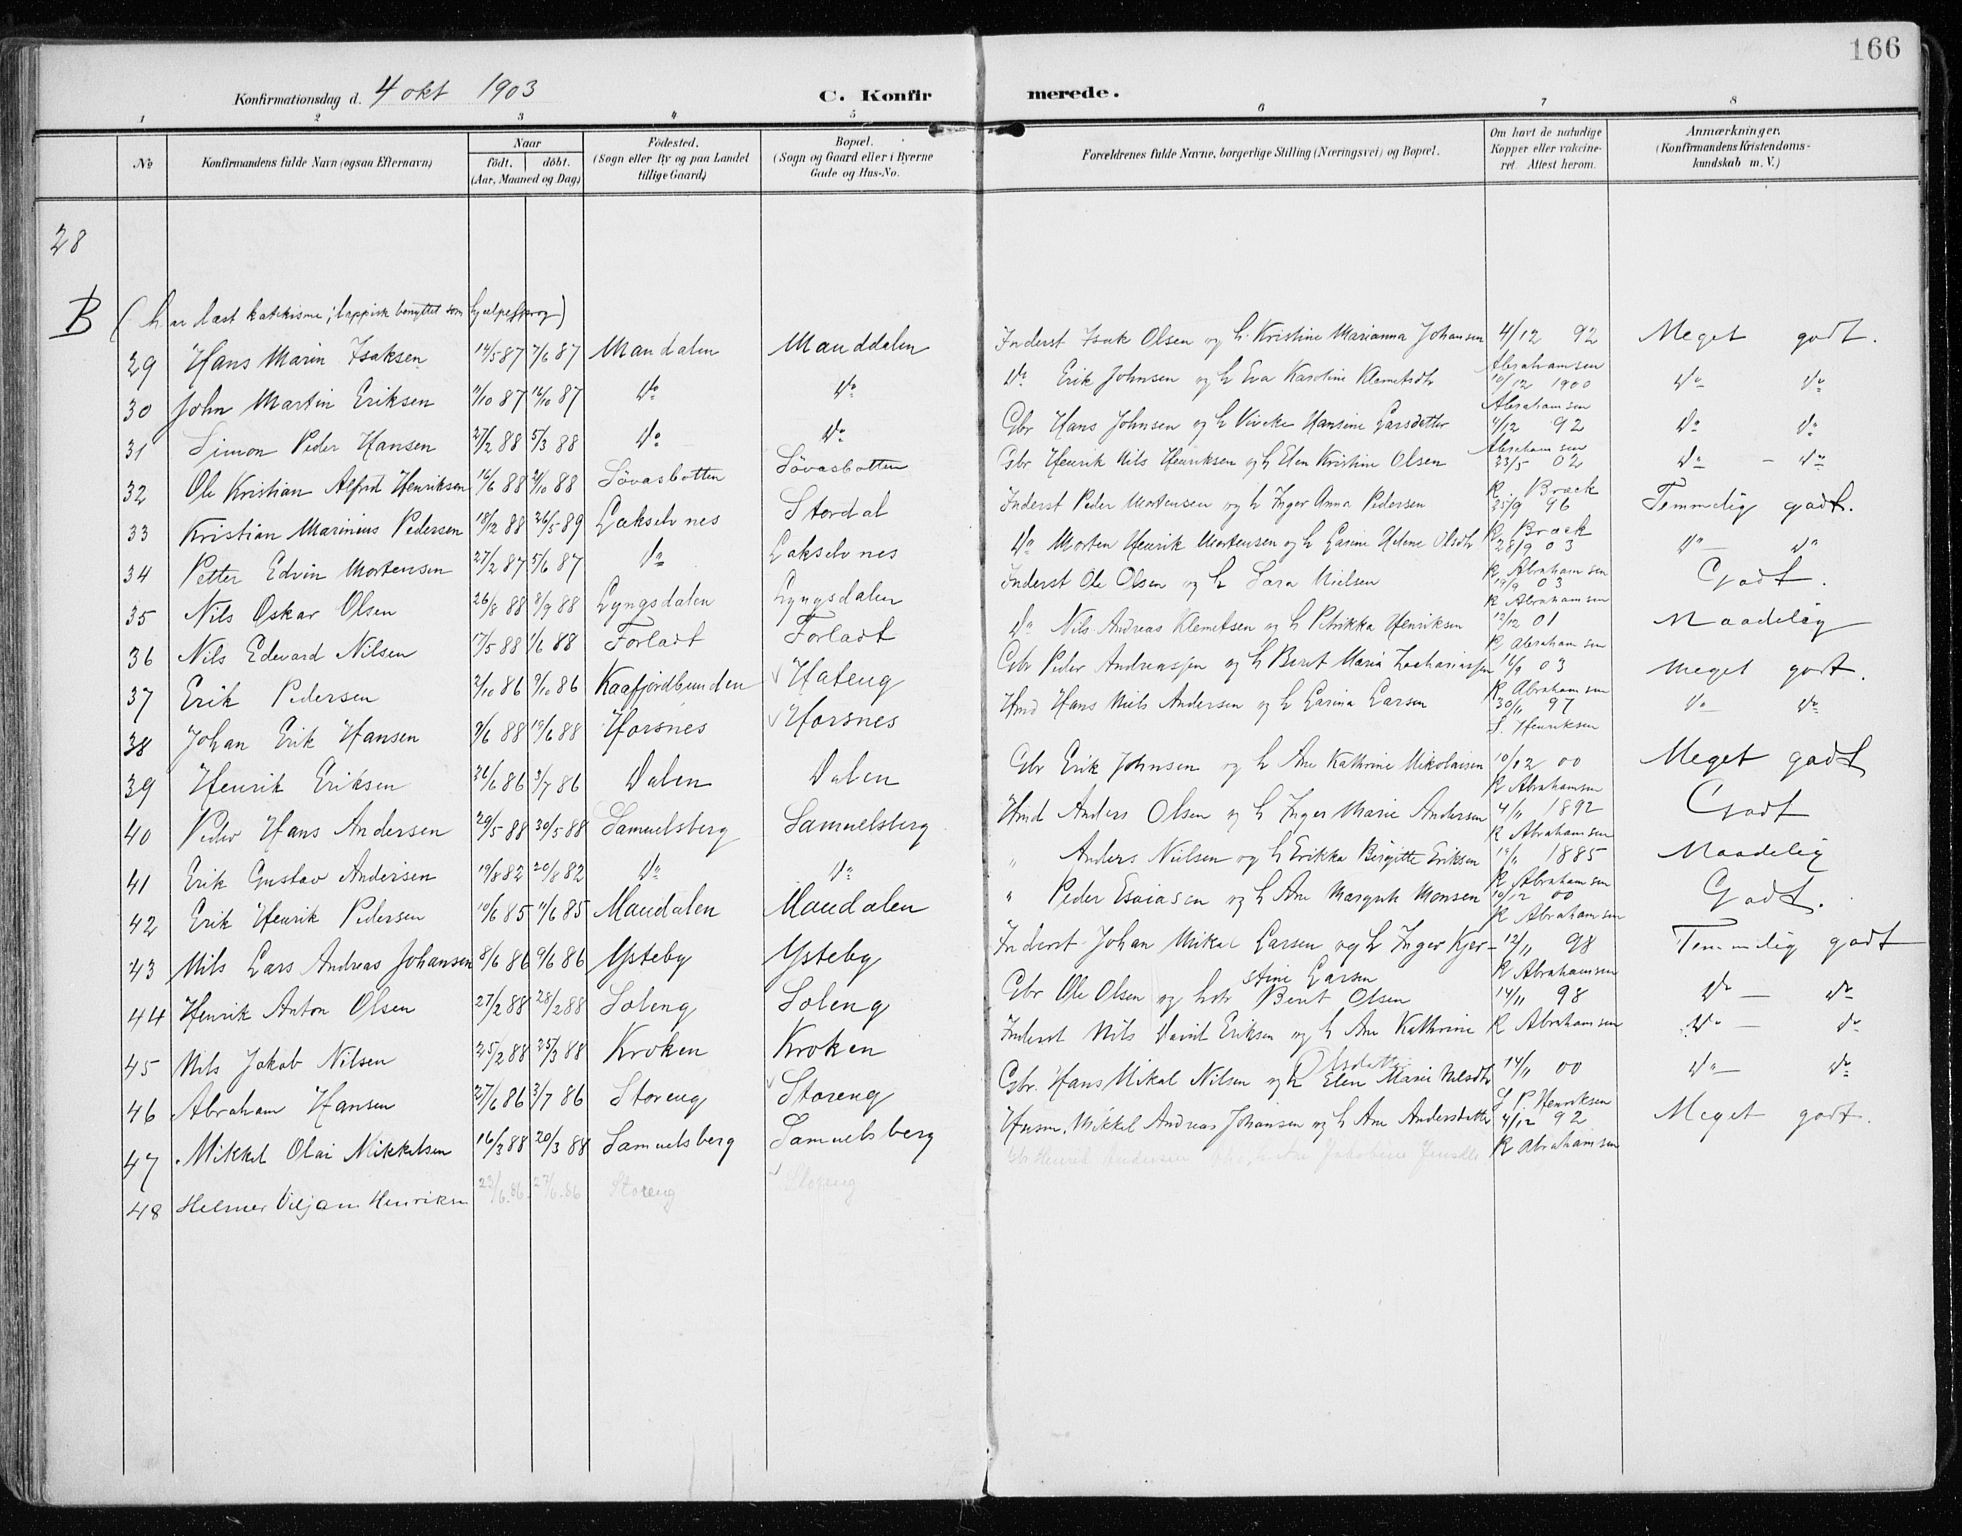 166
Konfirmationsdag d. 4 okt 1903 C. Konfirmerede.
1 2 3 4 5 6 7 8
No Konfirmandens fulde Navn (ogsaa Efternavn) Naar født. døbt. (Aar, Maaned og Dag) Fødested. (Sogn eller By og paa Landet tillige Gaard) Bopæl. (Sogn og Gaard eller i Byerne Gade og Hus-No. Forældrenes fulde Navne, borgerlige Stilling (Næringsvei) og Bopæl. Om havt de naturlige Kopper eller vakcineret. Attest herom. Anmærkninger. (Konfirmandens Kristendomskundskab m. V.)
28
B (har læst katekisme; lappisk benyttet som hjælpesprog)
29 Hans Marin Isaksen 14/5 87 7/6 87 Mandalen Manddalen Inderst Isak Olsen og h. Kristine Marianna Johansen 4/12 92 Abrahamsen Meget godt.
30 John Martin Eriksen /10 87 16/10 87 Do Do Do Erik Johnsen og h Eva Karoline Klemetsdtr 10/12 1900 Abrahamsen Do Do
31 Simon Peder Hansen 27/2 88 5/3 88 Do Do Gbr Hans Johnsen og h Viveke Hansine Larsdatter 4/12 92 Abrahamsen Do Do
32 Ole Kristian Alfred Henriksen 16/6 88 2/10 88 Løvasbotten Løvasbotten Gbr Henrik Nils Henriksen og h Elen Kristine Olsen 23/5 02 R Brock Do - Do
33 Kristian Marinius Pedersen 18/12 88 26/5 89 Lakselvnes Stordal Inderst Peder Mortensen og h Inger Anna Pedersen 25/9 96 R Brock Temmelig godt.
34 Petter Edvin Mortensen 27/2 87 5/6 87 Do Lakselvnes Do Morten Henrik Mortensen og h Larine Helene Olsdtr 28/9 03 R Abrahamsen Do - Do
35 Nils Oskar Olsen 26/8 88 8/9 88 Lyngsdalen Lyngsdalen Inderst Ole Olsen og h Sara Nielsen 19/9 03 R Abrahamsen Godt.
36 Nils Edevard Nilsen 17/5 88 1/6 88 Forladt Forladt Do Nils Andreas Klemetsen og h Petrikka Henriksen 12/12 01 R Abrahamsen Maadelig
37 Erik Pedersen 2/10 86 9/10 86 Kaafjordbunden Hateng Gbr Peder Andreassen og h Berit Maria Zachariassen 16/9 03 R Abrahamsen Meget godt.
38 Johan Erik Hansen 9/6 88 19/6 88 Horsnes Horsnes Hmd Hans Niels Andersen og h Larina Larsen 30/11 97 L. Henriksen Do Do
39 Henrik Eriksen 26/6 86 3/7 86 Dalen Dalen Gbr Erik Johnsen og h Ane Kathrine Nikolaisen 10/12 00 R Abrahamsen Meget godt
40 Peder Hans Andersen 29/5 88 30/5 88 Samuelsberg Samuelsberg Hmd Anders Olsen og h Inger Marie Andersen 4/11 1892 R Abrahamsen Godt
41 Erik Gustav Andersen 19/8 82 20/8 82 Do Do " Anders Nielsen og h Erikka Birgitte Eriksen 19/11 1885 R Abrahamsen Maadelig
42 Erik Henrik Pedersen 10/6 85 11/6 85 Mandalen Mandalen " Peder Esaiasen og h Ane Margreth Monsen 10/12 00 R Abrahamsen Godt.
43 Nils Lars Andreas Johansen 8/6 86 9/6 86 Ysteby Ysteby Inderst Johan Mikal Larsen og h Inger Kjerstine Larsen 12/11 98 R Abrahamsen Temmelig godt
44 Henrik Anton Olsen 27/2 88 28/2 88 Soleng Soleng Gbr Ole Olsen og h Berit Olsen 14/11 98 R Abrahamsen Do - Do
45 Nils Jakob Nilsen 25/2 88 25/3 88 Kroken Kroken Inderst Nils David Eriksen og h Ane Kathrine Olsdatter Do - Do
46 Abraham Hansen 27/6 86 3/7 86 Storeng Storeng Gbr. Hans Mikal Nilsen og h Elen Marie Nilsdtr 14/11 00 L P Henriksen Do - Do
47 Mikkel Olai Mikkelsen 16/3 88 20/3 88 Samuelsberg Samuelsberg Husm. Mikkel Andreas Johansen og h Ane Andersdatter 4/12 92 R Abrahamsen Meget godt.
48 Helmer Viljam Henriksn 23/6.86 27/6.86 Storeng Storeng Gbr Henrik Andersen h Ane Jakobine Jensdtr